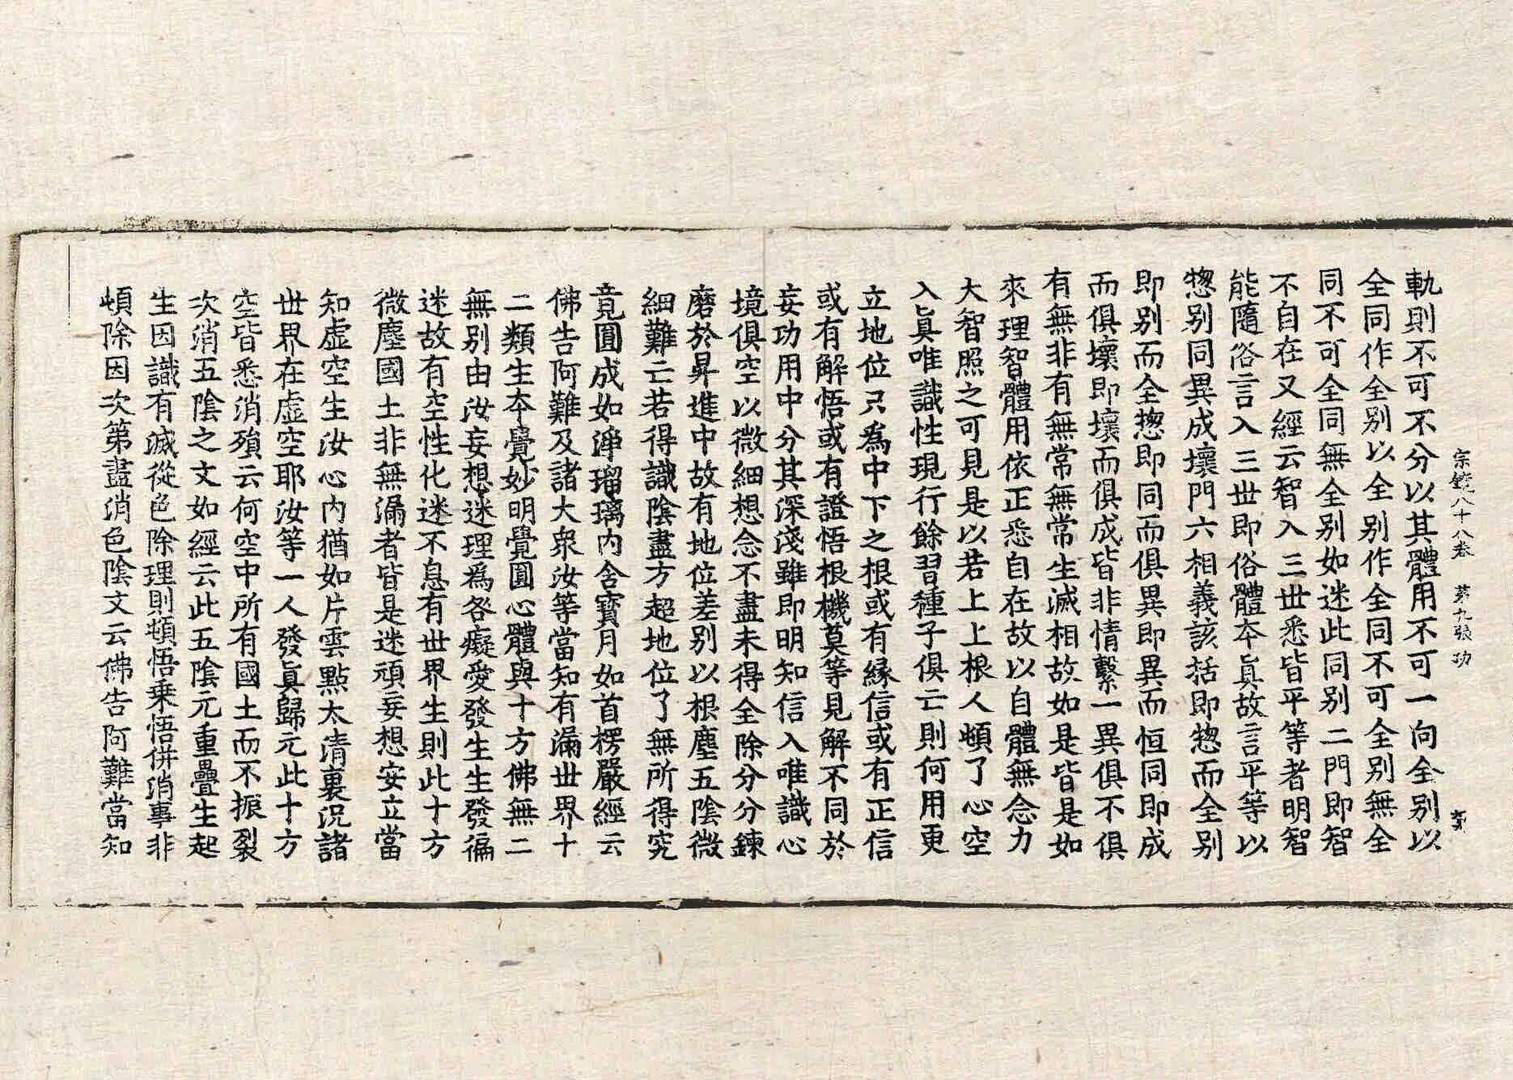 宗鏡八十八卷　第九張　功
軌則不可不分以其體用不可一向全別以
全同作全別以全別作全同不可全別無全
同不可全同無全別如迷此同別二門即智
不自在又經云智入三世悉皆平等者明智
能隨俗言入三世即俗體夲眞故言平等以
惣別同異成壞門六相義該括即惣而全別
即別而全惣即同而俱異即異而恒同即成
而俱壞即壞而俱成皆非情繫一異俱不俱
有無非有無常無常生滅相故如是皆是如
來理智體用依正悉自在故以自體無念力
大智照之可見是以若上上根人頓了心空
入眞唯識性現行餘習種子俱亡則何用更
立地位只爲中下之根或有縁信或有正信
或有解悟或有證悟根機莫等見解不同於
妄功用中分其深淺雖即明知信入唯識心
境俱空以微細想念不盡未得全除分分鍊
磨於昇進中故有地位差別以根塵五陰微
細難亡若得識陰盡方超地位了無所得究
竟圓成如淨瑠璃內含寳月如首楞嚴經云
佛告阿難及諸大衆汝等當知有漏世界十
二類生夲覺妙明覺圓心體與十方佛無二
無別由汝妄想迷理爲咎癡愛發生生發徧
迷故有空性化迷不息有世界生則此十方
微塵國土非無漏者皆是迷頑妄想安立當
知虛空生汝心內猶如片雲點太清裏況諸
世界在虛空耶汝等一人發眞歸元此十方
空皆悉消殞云何空中所有國土而不振裂
次消五陰之文如經云此五陰元重疊生起
生因識有滅從色除理則頓悟乗悟併消事非
頓除因次第盡消色陰文云佛告阿難當知